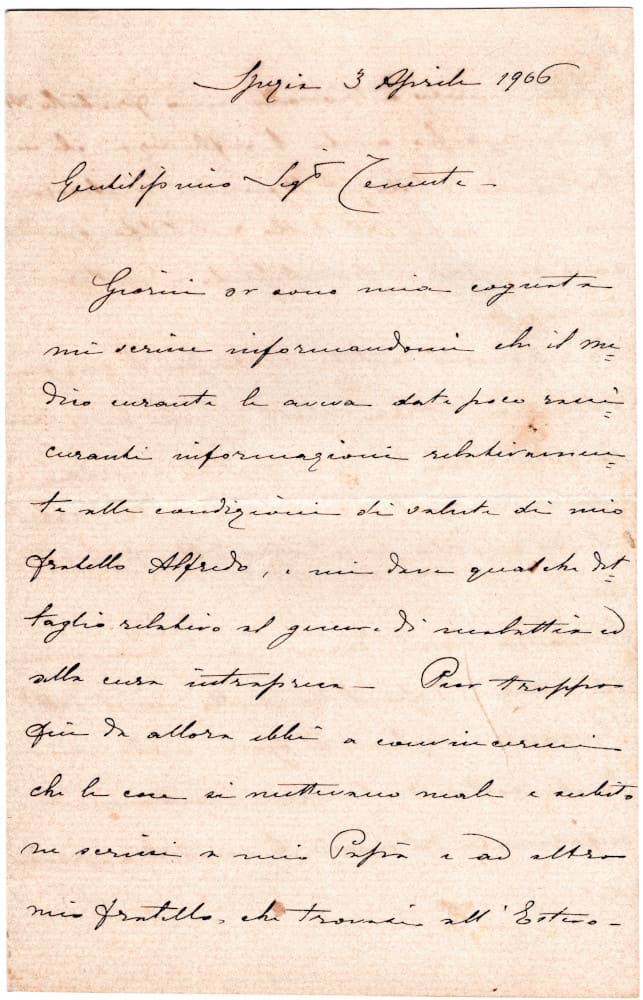 Spezia 3 Aprile 1906
Gentilissimo Sigr Tenente -
Giorni or sono mia cognata
mi scrisse informandomi che il me=
dico curante le aveva date poco rassi=
curanti informazioni relativamen=
te alle condizioni di salute di mio
fratello Alfredo, e mi dava qualche det=
taglio relativo al genere di malattia ed
alla cura intrapresa - Pur troppo
fin da allora ebbi a convincermi
che le cose si mettevano male e subito
ne scrissi a mio Papà e ad altro
mio fratello, che trovasi all'Estero -